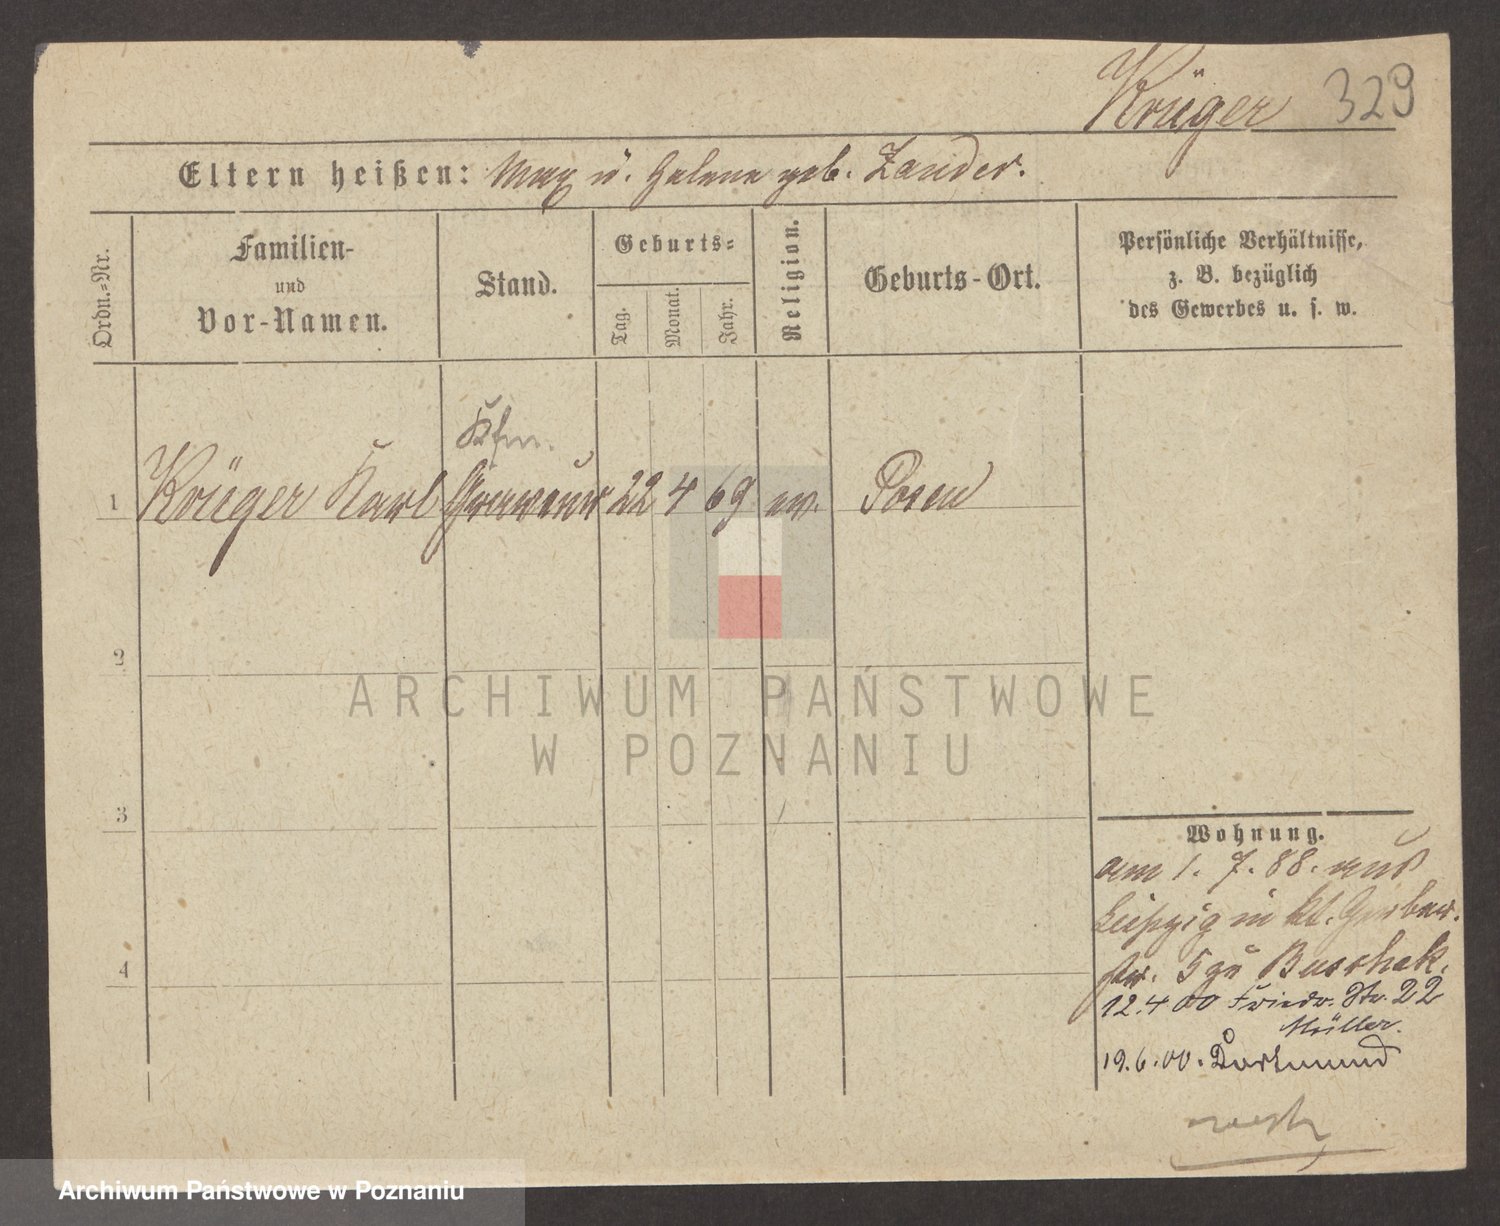 Krüger 329
Eltern heißen: Max u. Helene geb. Zander.
Ordn.-Nr.
Familien-
und
Vor-Namen.
Stand.
Geburts-
Tag.
Monat.
Jahr.
Religion.
Geburts-Ort.
Persönliche Verhältnisse,
z. B. bezüglich
des Gewerbes u. s. w.
Kfm.
1 Krüger Karl Graveur 22 4 69 ev. Posen
2
3
4
Wohnung.
am 1. 7. 88. aus
Leipzig in kl. Gerber-
str. 5 zu Buschak.
12.4 00 Friedr. Str. 22
Müller.
19.6.00. Dortmund
ARCHIWUM PAŃSTWOWE
W POZNANIU
Archiwum Państwowe w Poznaniu